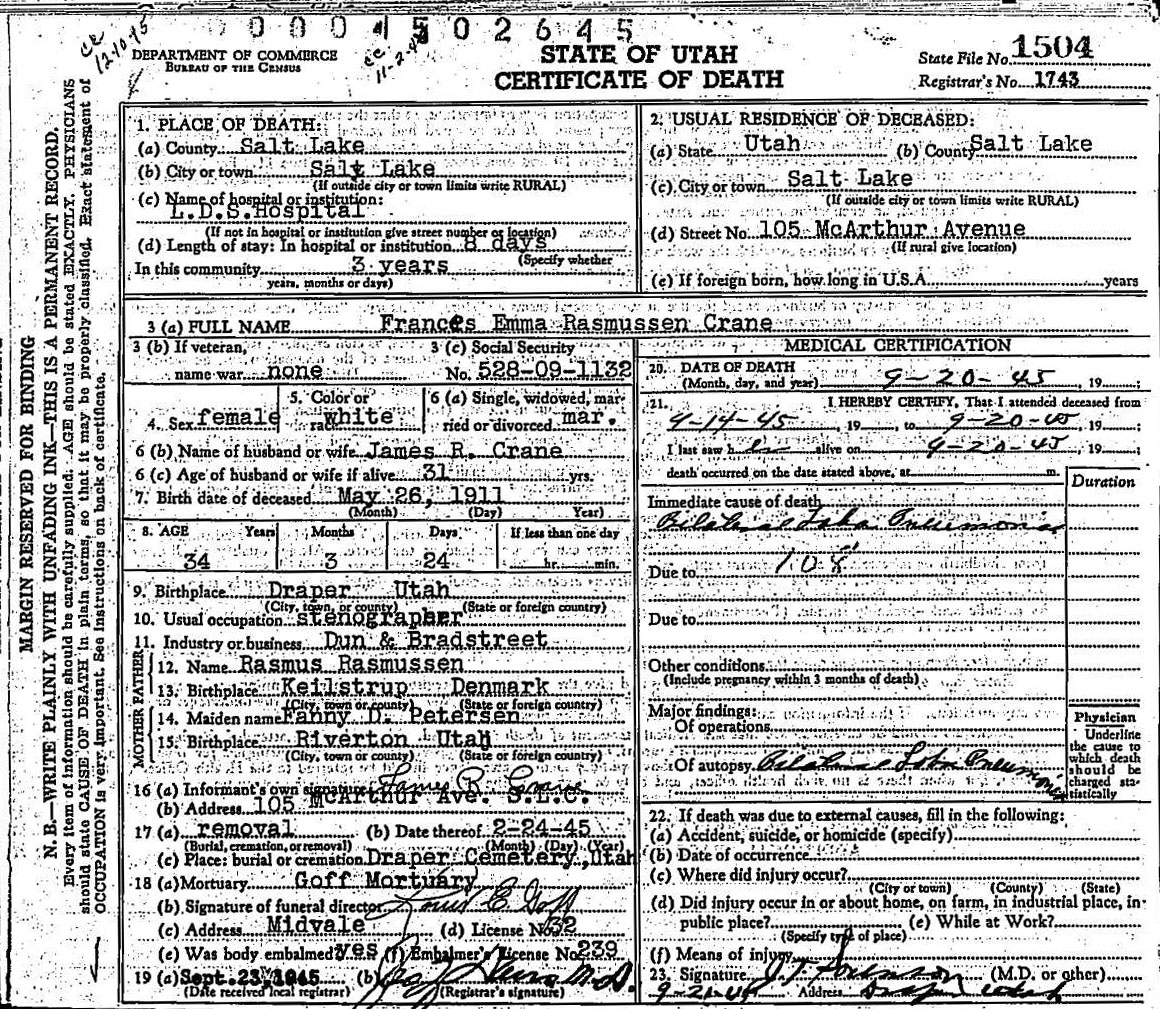 0004502645
CC
12-10-45
CC
DEPARTMENT OF COMMERCE
BUREAU OF THE CENSUS
STATE OF UTAH
CERTIFICATE OF DEATH
State File No. 1504
Registrar's No. 1743
MARGIN RESERVED FOR BINDING
N. B.—WRITE PLAINLY WITH UNFADING INK—THIS IS A PERMANENT RECORD.
Every item of information should be carefully supplied. AGE should be stated EXACTLY. PHYSICIANS
should state CAUSE OF DEATH in plain terms, so that it may be properly classified. Exact statement of
OCCUPATION is very important. See instructions on back of certificate.
1. PLACE OF DEATH:
(a) County Salt Lake
(b) City or town Salt Lake
(If outside city or town limits write RURAL)
(c) Name of hospital or institution:
L.D.S.Hospital
(If not in hospital or institution give street number or location)
(d) Length of stay: In hospital or institution 8 days
(Specify whether
In this community 3 years
years, months or days)
2. USUAL RESIDENCE OF DECEASED:
(a) State Utah (b) County Salt Lake
(c) City or town Salt Lake
(If outside city or town limits write RURAL)
(d) Street No. 105 McArthur Avenue
(If rural give location)
(e) If foreign born, how long in U.S.A. years
3 (a) FULL NAME Frances Emma Rasmussen Crane
3 (b) If veteran,
name war none
3 (c) Social Security
No. 528-09-1132
4. Sex female
5. Color or
race white
6 (a) Single, widowed, mar-
ried or divorced mar.
6 (b) Name of husband or wife James R. Crane
6 (c) Age of husband or wife if alive 31 yrs.
7. Birth date of deceased May 26, 1911
(Month) (Day) Year)
8. AGE Years Months Days If less than one day
34 3 24 hr. min.
9. Birthplace Draper Utah
(City, town, or county) (State or foreign country)
10. Usual occupation stenographer
11. Industry or business Dun & Bradstreet
FATHER
12. Name Rasmus Rasmussen
13. Birthplace Keilstrup Denmark
(City, town or county) (State or foreign country)
MOTHER
14. Maiden name Fanny D. Petersen
15. Birthplace Riverton Utah
(City, town or county) (State or foreign country)
16 (a) Informant's own signature James R. Crane
(b) Address 105 McArthur Ave. S.L.C.
17 (a) removal (b) Date thereof 2-24-45
(Burial, cremation, or removal) (Month) (Day) (Year)
(c) Place: burial or cremation Draper Cemetery, Utah
18 (a) Mortuary Goff Mortuary
(b) Signature of funeral director Louis E Goff
(c) Address Midvale (d) License No. 32
(e) Was body embalmed? yes (f) Embalmer's License No. 239
19 (a) Sept. 23, 1945 (b) M.D.
(Date received local registrar) (Registrar's signature)
MEDICAL CERTIFICATION
20. DATE OF DEATH
(Month, day, and year) 9-20-45, 19 ;
21. I HEREBY CERTIFY, That I attended deceased from
9-14-45, 19 , to 9-20-45, 19 ;
I last saw her alive on 9-20-45, 19 ;
death occurred on the date stated above, at m.
Duration
Immediate cause of death
Bilateral Lobar Pneumonia
Due to 108
Due to
Other conditions
(Include pregnancy within 3 months of death)
Major findings:
Of operations
Of autopsy Bilateral Lobar Pneumonia
Physician
Underline
the cause to
which death
should be
charged sta-
tistically
22. If death was due to external causes, fill in the following:
(a) Accident, suicide, or homicide (specify)
(b) Date of occurrence
(c) Where did injury occur?
(City or town) (County) (State)
(d) Did injury occur in or about home, on farm, in industrial place, in
public place? (e) While at Work?
(Specify type of place)
(f) Means of injury
23. Signature (M.D. or other)
9-21-45 Address Draper Utah